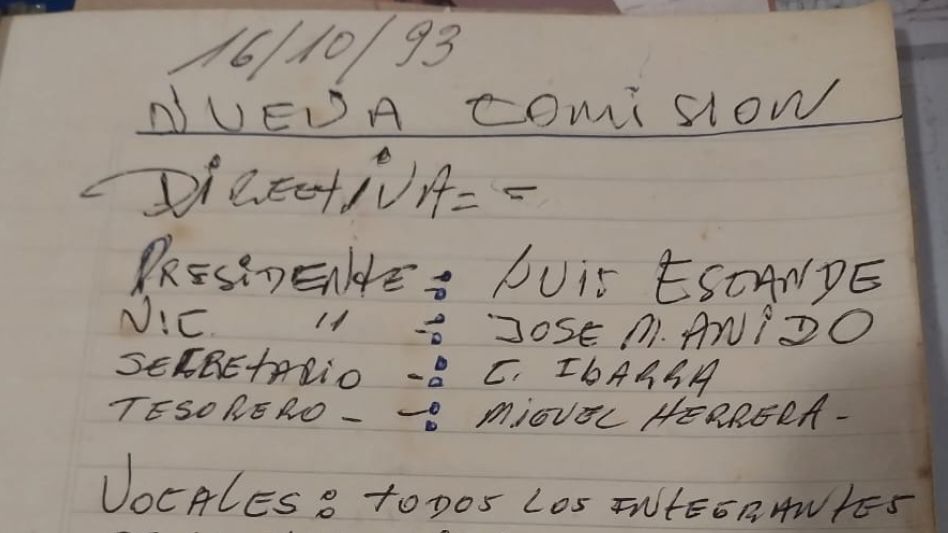 16/10/93
NUEVA COMISION
DIRECTIVA==
PRESIDENTE -: LUIS ESCANDE
VIC. " -: JOSE M. ANIDO
SECRETARIO -: C. IBARRA
TESORERO - -: MIGUEL HERRERA -
VOCALES: TODOS LOS INTEGRANTES